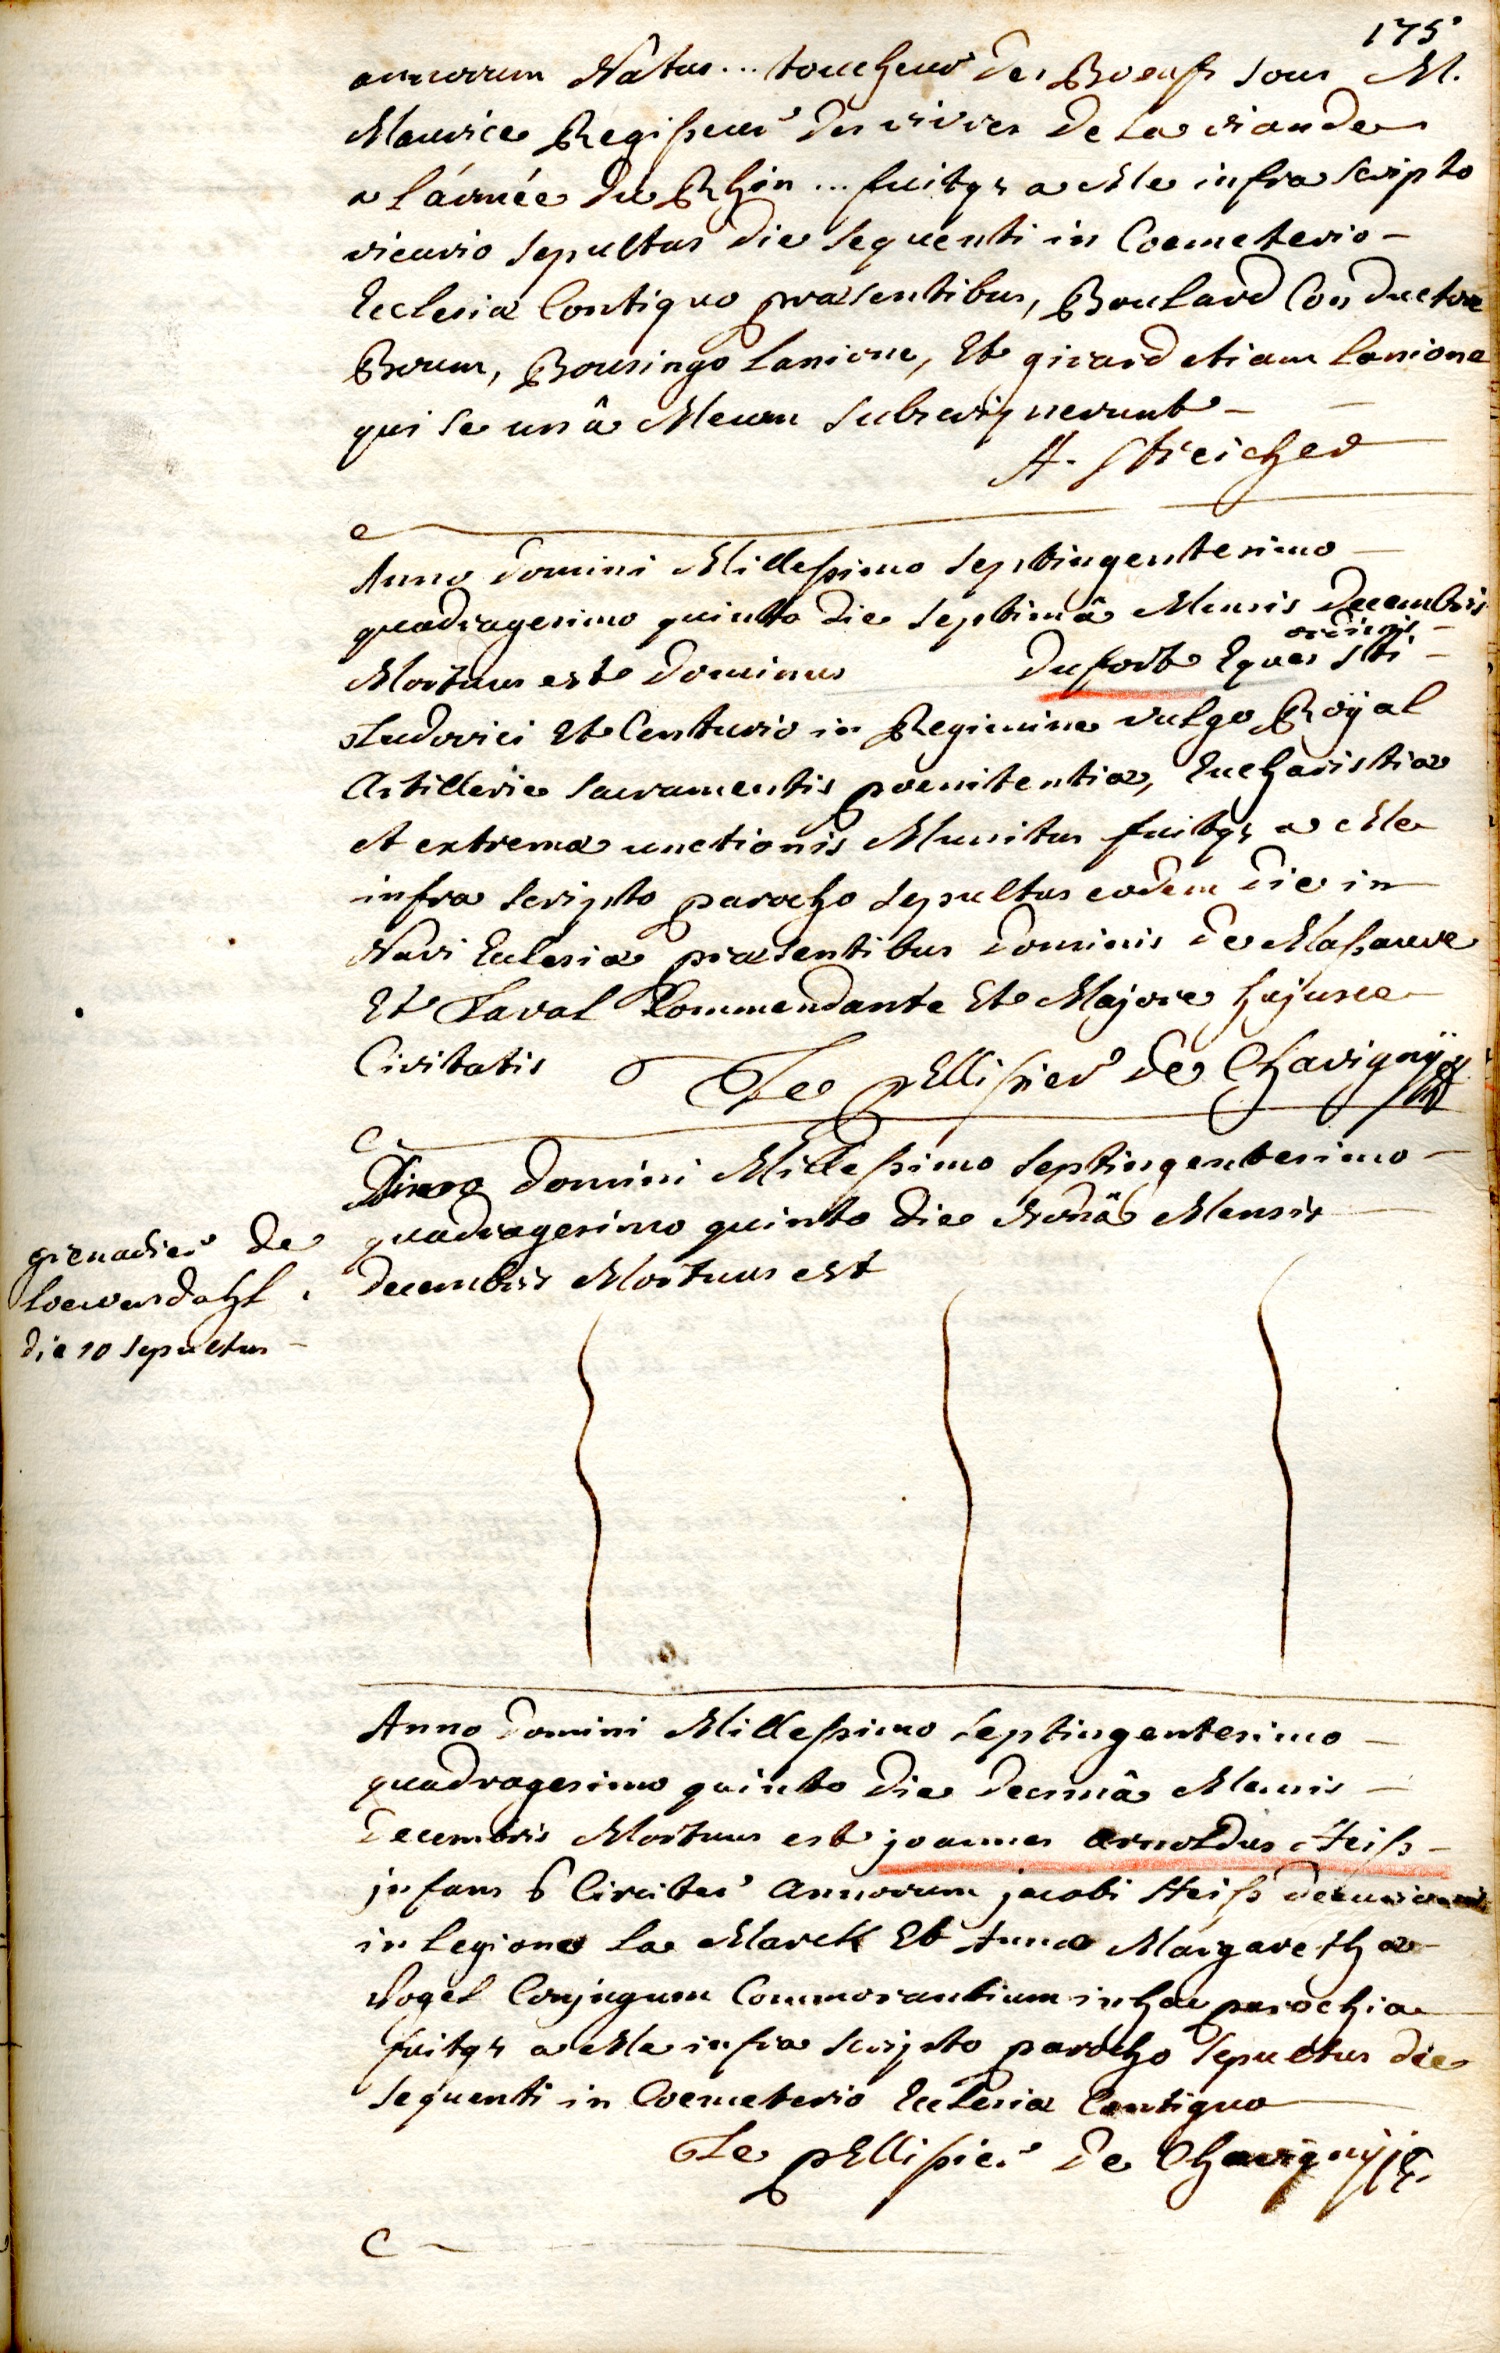 175
annorum Natus... toucheur des Boeufs sous M.
Maurice Regisseur des vivres de la viande
a l'armée du Rhin... fuitqz a Me infra scripto
vicario sepultus die sequenti in Coemeterio -
Ecclesiæ Contiguo præsentibus, Boulard Conductore
Boum, Bousingo Lanione, Et girard etiam Lanione
qui se unâ Mecum subsignerunt -
A. Streicher
Anno domini Millessimo septingentesimo -
quadragesimo quinto die septimâ Mensis decembris
Mortuus est dominus duforte Eques ordinis Sti -
Ludovici Et Centurio in Regimine vulgo Roÿal
Artillerie sacramentis poenitentiæ, Eucharistiæ
et extremæ unctionis Munitus fuitqz a Me
infra scripto parocho sepultus eodem die in
Navi Eclesiæ præsentibus dominis de Massauve
Et Laval Commendante Et Majore hujusce
Civitatis Le pEllissier de Chavignÿ
Anno domini Millessimo septingentesimo -
quadragesimo quinto die Nonâ Mensis
decembris Mortuus est
grenadier de
Loewendahl.
die 10 sepultus -
Anno domini Millessimo septingentesimo -
quadragesimo quinto die decimâ Mensis -
decembris Mortuus est joannes arnoldus Heiss -
jnfans 6 Circiter annorum jacobi Heiss
in legione La Marck Et Annæ Margarethæ
Vogel Conjugum Commorantium in hac parochia
fuitqz a Me infra scripto parocho sepultus die
sequenti in Coemeterio Ecclesiæ Contiguo
Le pEllissier de Chavignÿ